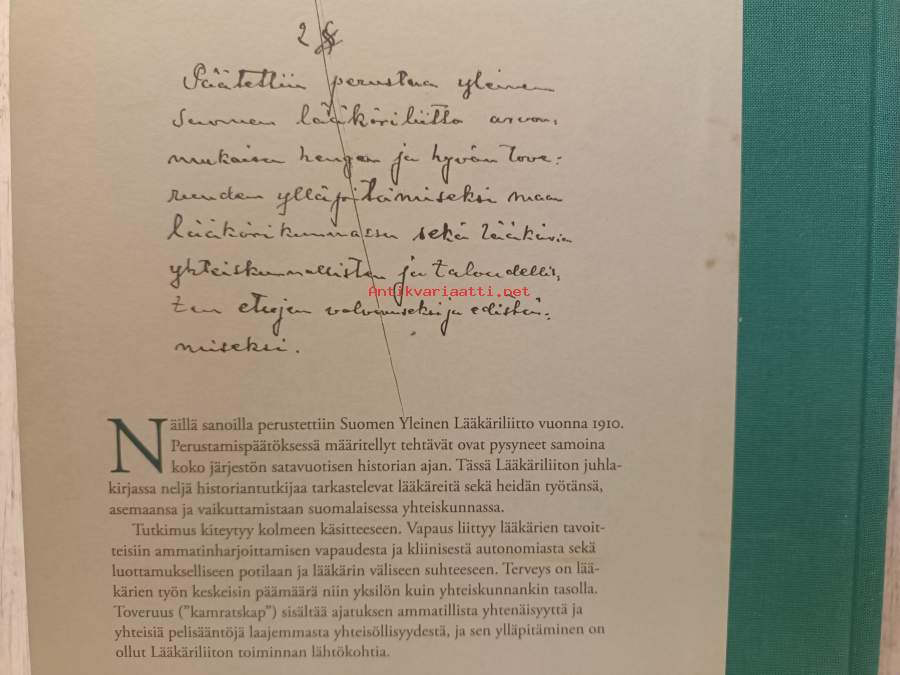 2 §
Päätettiin perustaa yleinen
Suomen lääkäriliitto arvon-
mukaisen hengen ja hyvän tove-
ruuden ylläpitämiseksi maan
lääkärikunnassa sekä lääkärien
yhteiskunnallisten ja taloudellis-
ten etujen valvomiseksi ja edistä-
miseksi.
Antikvariaatti.net
Näillä sanoilla perustettiin Suomen Yleinen Lääkäriliitto vuonna 1910.
Perustamispäätöksessä määritellyt tehtävät ovat pysyneet samoina
koko järjestön satavuotisen historian ajan. Tässä Lääkäriliiton juhla-
kirjassa neljä historiantutkijaa tarkastelevat lääkäreitä sekä heidän työtänsä,
asemaansa ja vaikuttamistaan suomalaisessa yhteiskunnassa.
Tutkimus kiteytyy kolmeen käsitteeseen. Vapaus liittyy lääkärien tavoit-
teisiin ammatinharjoittamisen vapaudesta ja kliinisestä autonomiasta sekä
luottamukselliseen potilaan ja lääkärin väliseen suhteeseen. Terveys on lää-
kärien työn keskeisin päämäärä niin yksilön kuin yhteiskunnankin tasolla.
Toveruus (”kamratskap”) sisältää ajatuksen ammatillista yhtenäisyyttä ja
yhteisiä pelisääntöjä laajemmasta yhteisöllisyydestä, ja sen ylläpitäminen on
ollut Lääkäriliiton toiminnan lähtökohtia.